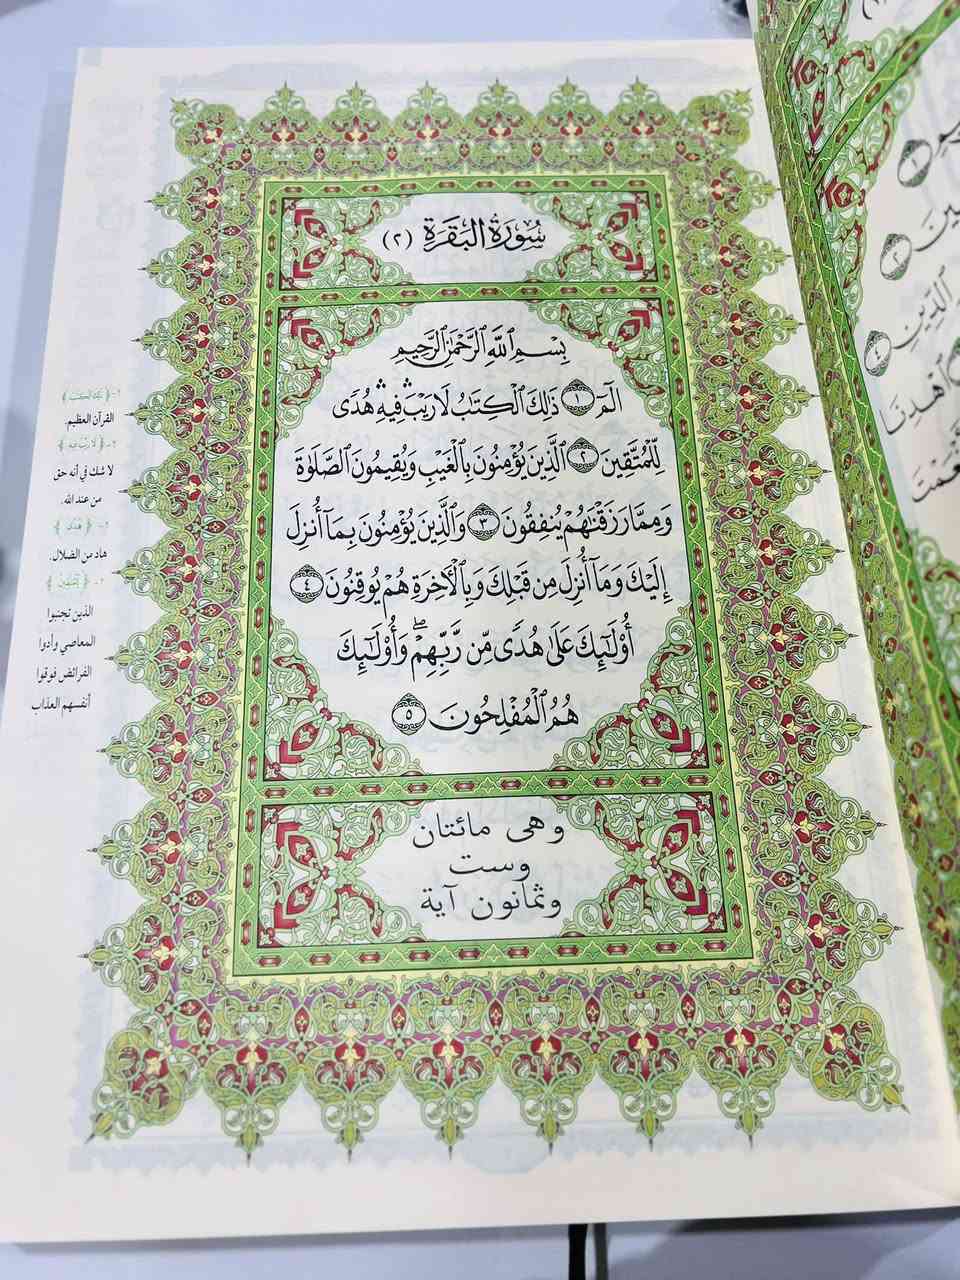 سُورَةُ البَقَرَةِ (٢)
بِسْمِ ٱللَّهِ ٱلرَّحْمَٰنِ ٱلرَّحِيمِ
الٓمٓ ١ ذَٰلِكَ ٱلْكِتَٰبُ لَا رَيْبَ ۛ فِيهِ ۛ هُدًى
لِّلْمُتَّقِينَ ٢ ٱلَّذِينَ يُؤْمِنُونَ بِٱلْغَيْبِ وَيُقِيمُونَ ٱلصَّلَوٰةَ
وَمِمَّا رَزَقْنَٰهُمْ يُنفِقُونَ ٣ وَٱلَّذِينَ يُؤْمِنُونَ بِمَآ أُنزِلَ
إِلَيْكَ وَمَآ أُنزِلَ مِن قَبْلِكَ وَبِٱلْأٓخِرَةِ هُمْ يُوقِنُونَ ٤
أُو۟لَٰٓئِكَ عَلَىٰ هُدًى مِّن رَّبِّهِمْ ۖ وَأُو۟لَٰٓئِكَ
هُمُ ٱلْمُفْلِحُونَ ٥
وهى مائتان
وست
وثمانون آية
٢-﴿ ذَٰلِكَ الكتب ﴾
القرآن العظيم.
٢-﴿ لا ريب فيه ﴾
لا شك في أنه حق
من عند الله.
٢-﴿ هُدًى ﴾
هاد من الضلال.
الذين تجنبوا
المعاصي وأدوا
الفرائض فوقوا
أنفسهم العذاب
١
٢
ٱلدِّينِ
٤
ٱهْدِنَا